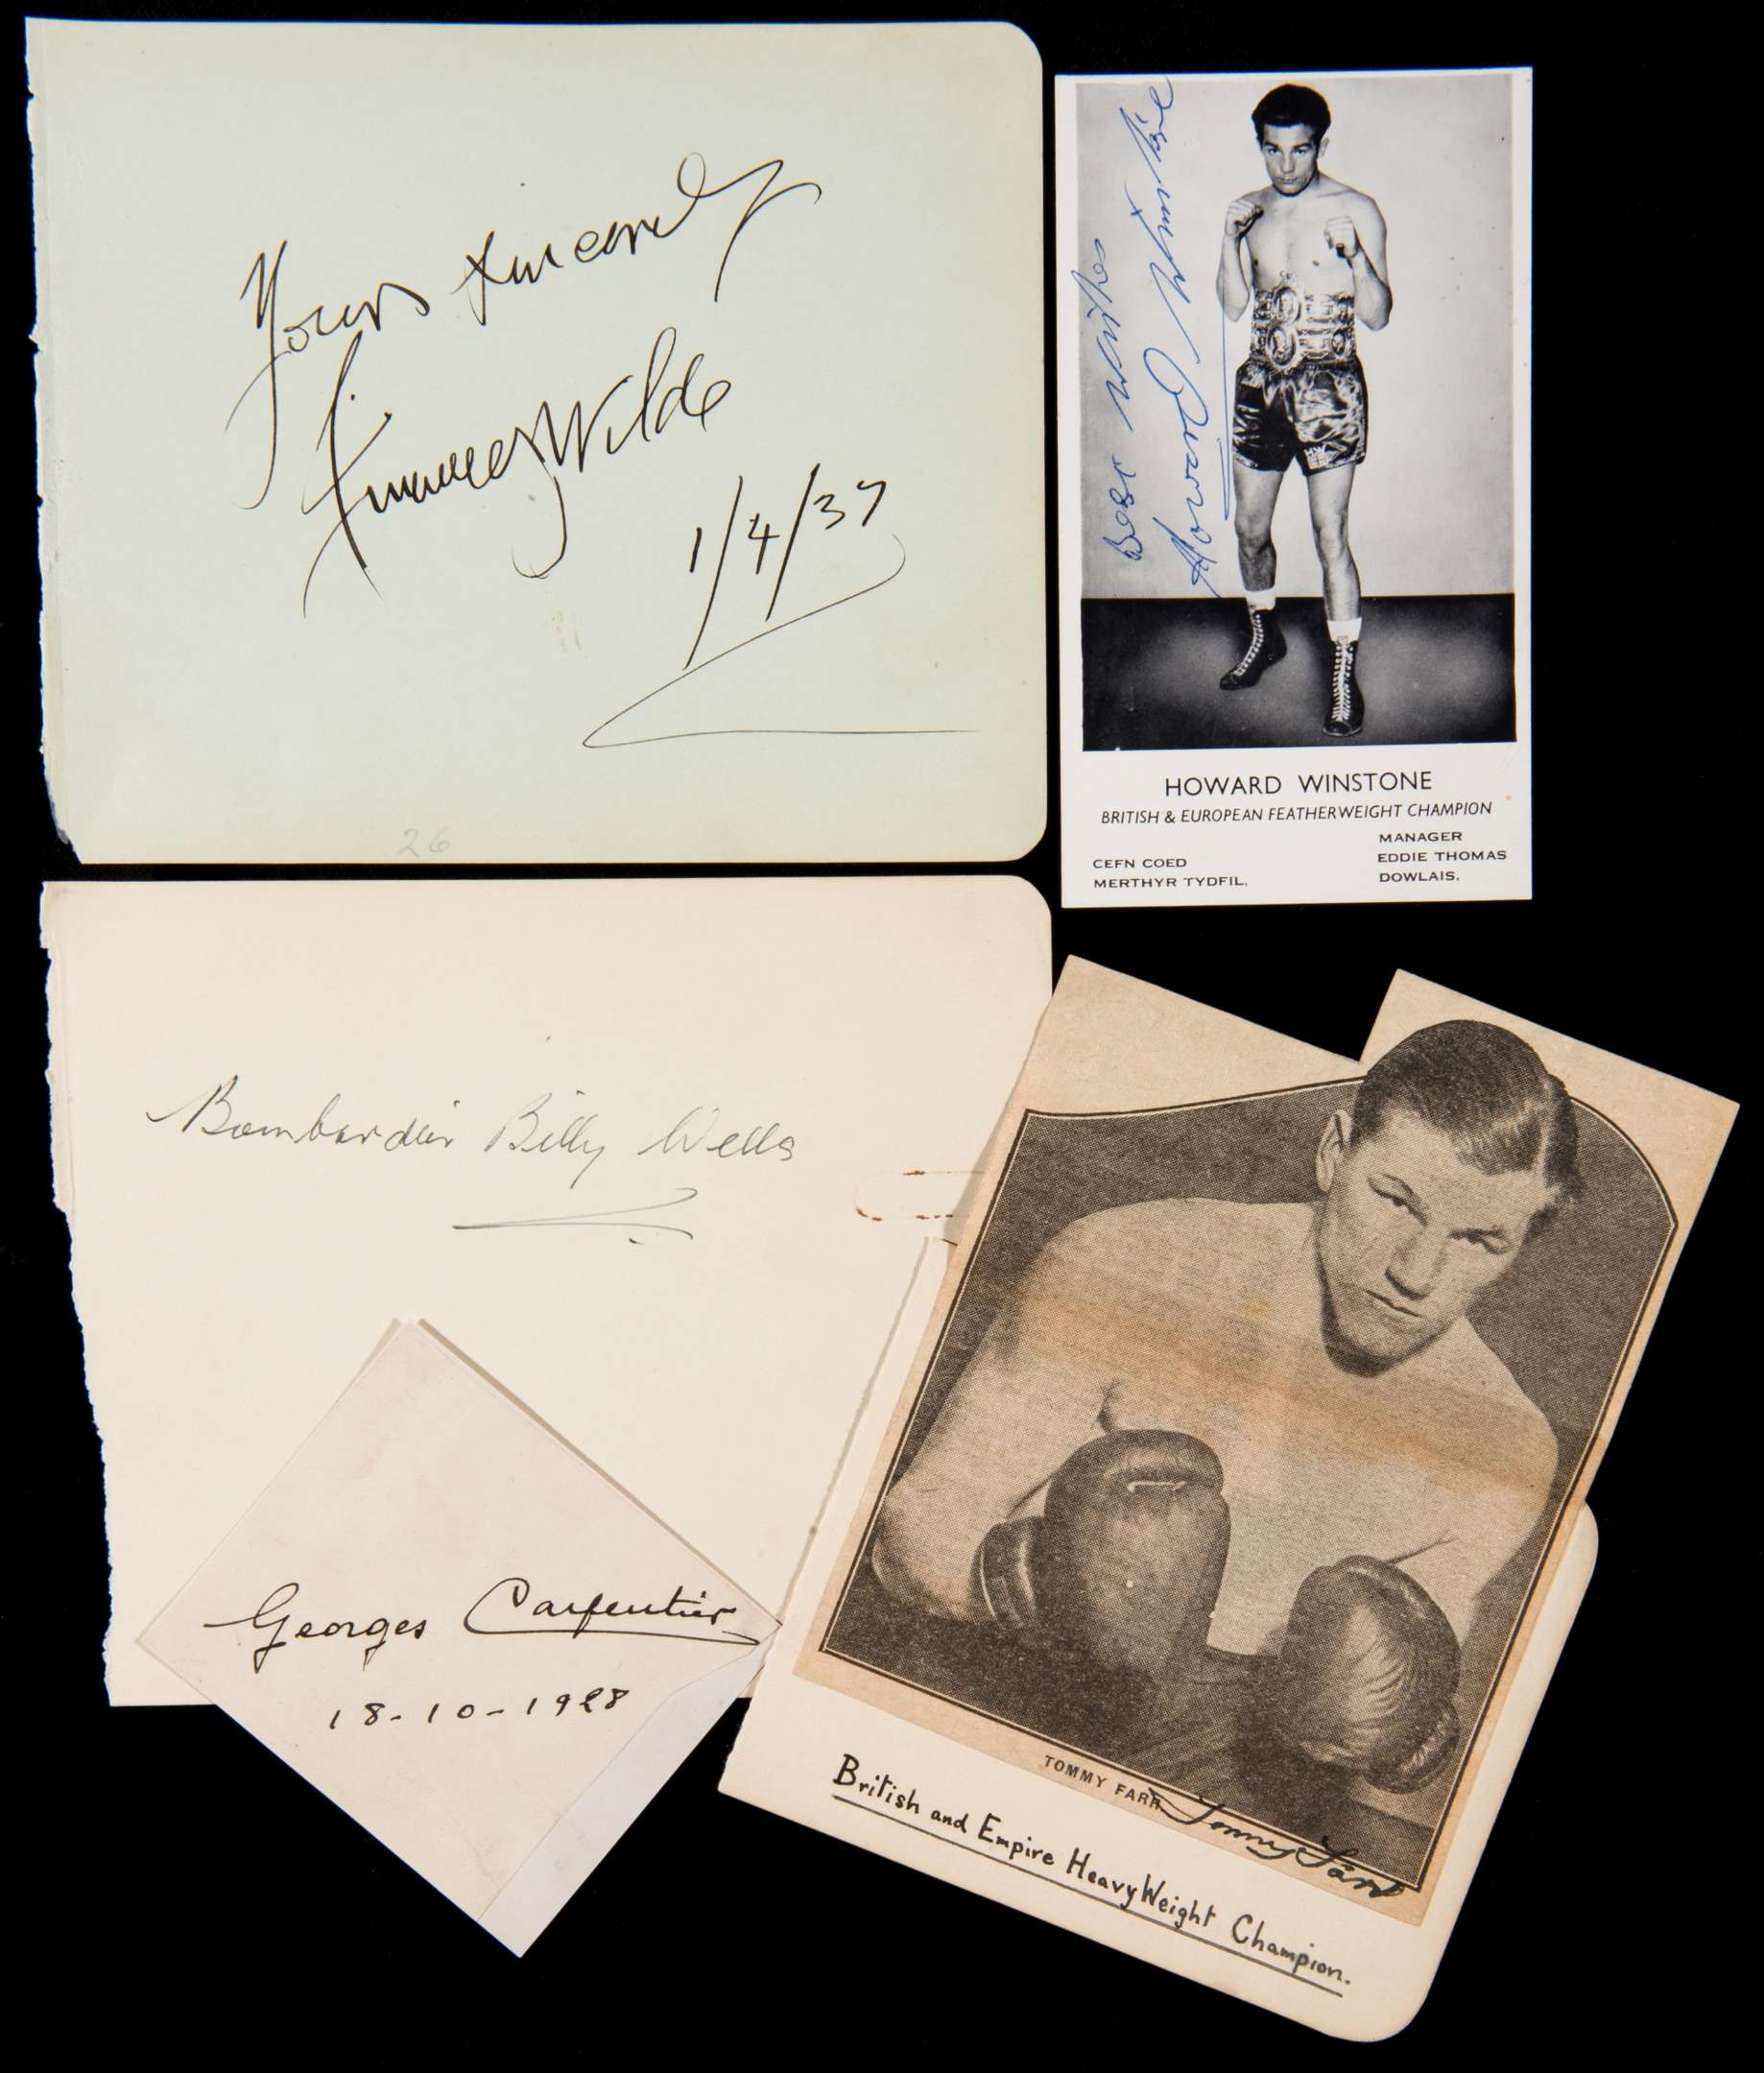 Yours Sincerely
Jimmy Wilde
1/4/37
26
Best wishes
Howard Winstone
HOWARD WINSTONE
BRITISH & EUROPEAN FEATHERWEIGHT CHAMPION
CEFN COED
MERTHYR TYDFIL.
MANAGER
EDDIE THOMAS
DOWLAIS.
Bombardier Billy Wells
Georges Carpentier
18-10-1928
TOMMY FARR
Tommy Farr
British and Empire HeavyWeight Champion.